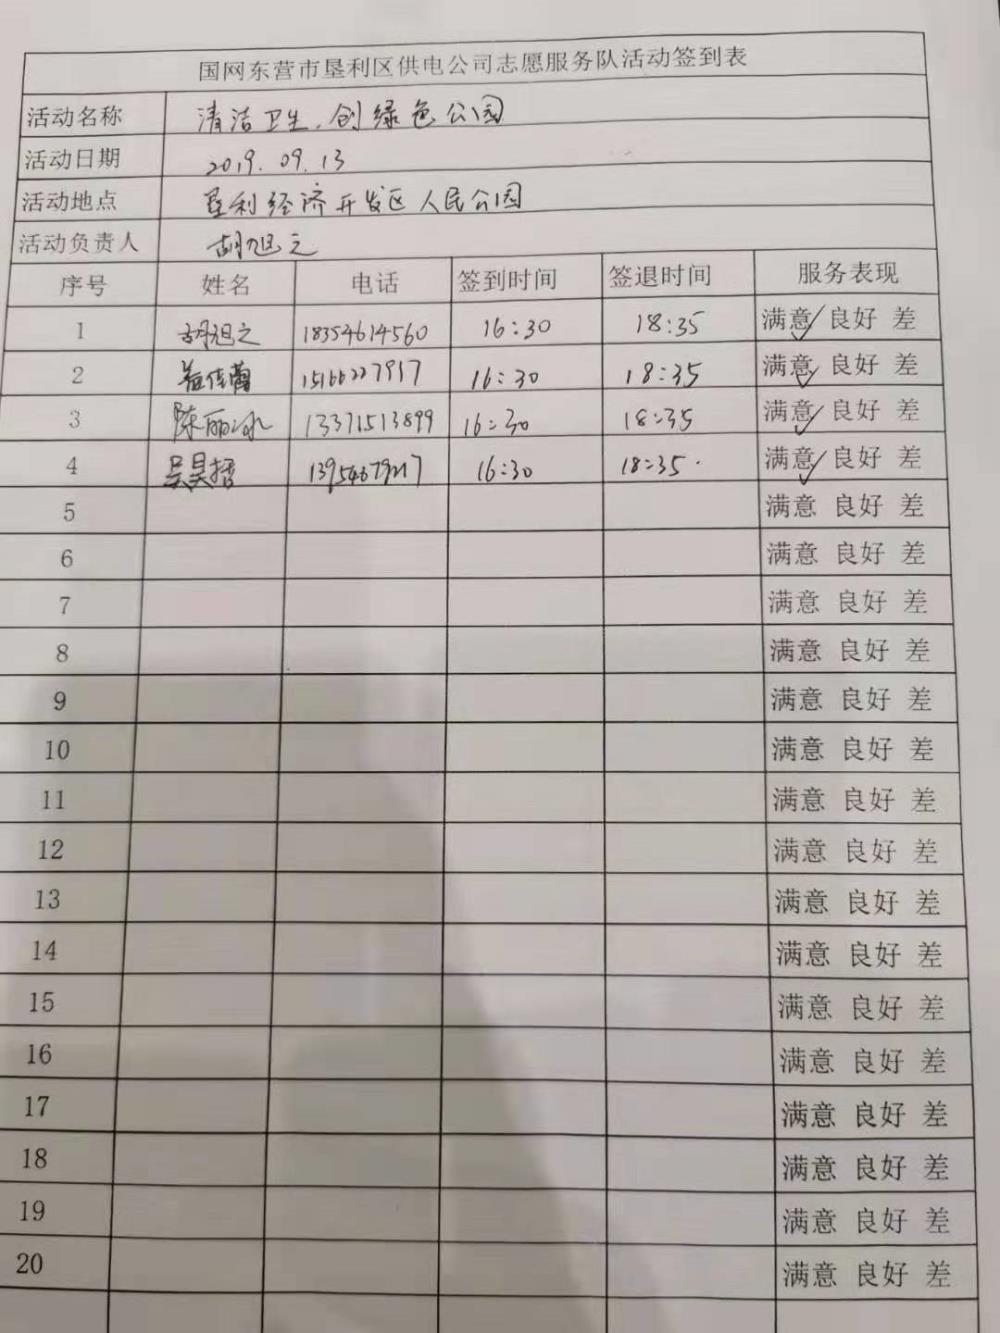 国网东营市垦利区供电公司志愿服务队活动签到表
活动名称 清洁卫生.创绿色公园
活动日期 2019.09.13
活动地点 垦利经济开发区人民公园
活动负责人 胡旭之
序号 姓名 电话 签到时间 签退时间 服务表现
1 胡旭之 18354614560 16:30 18:35 满意✓ 良好 差
2 15166227917 16:30 18:35 满意✓ 良好 差
3 陈丽冰 13371513899 16:30 18:35 满意✓ 良好 差
4 吴昊 16:30 18:35. 满意✓ 良好 差
5 满意 良好 差
6 满意 良好 差
7 满意 良好 差
8 满意 良好 差
9 满意 良好 差
10 满意 良好 差
11 满意 良好 差
12 满意 良好 差
13 满意 良好 差
14 满意 良好 差
15 满意 良好 差
16 满意 良好 差
17 满意 良好 差
18 满意 良好 差
19 满意 良好 差
20 满意 良好 差